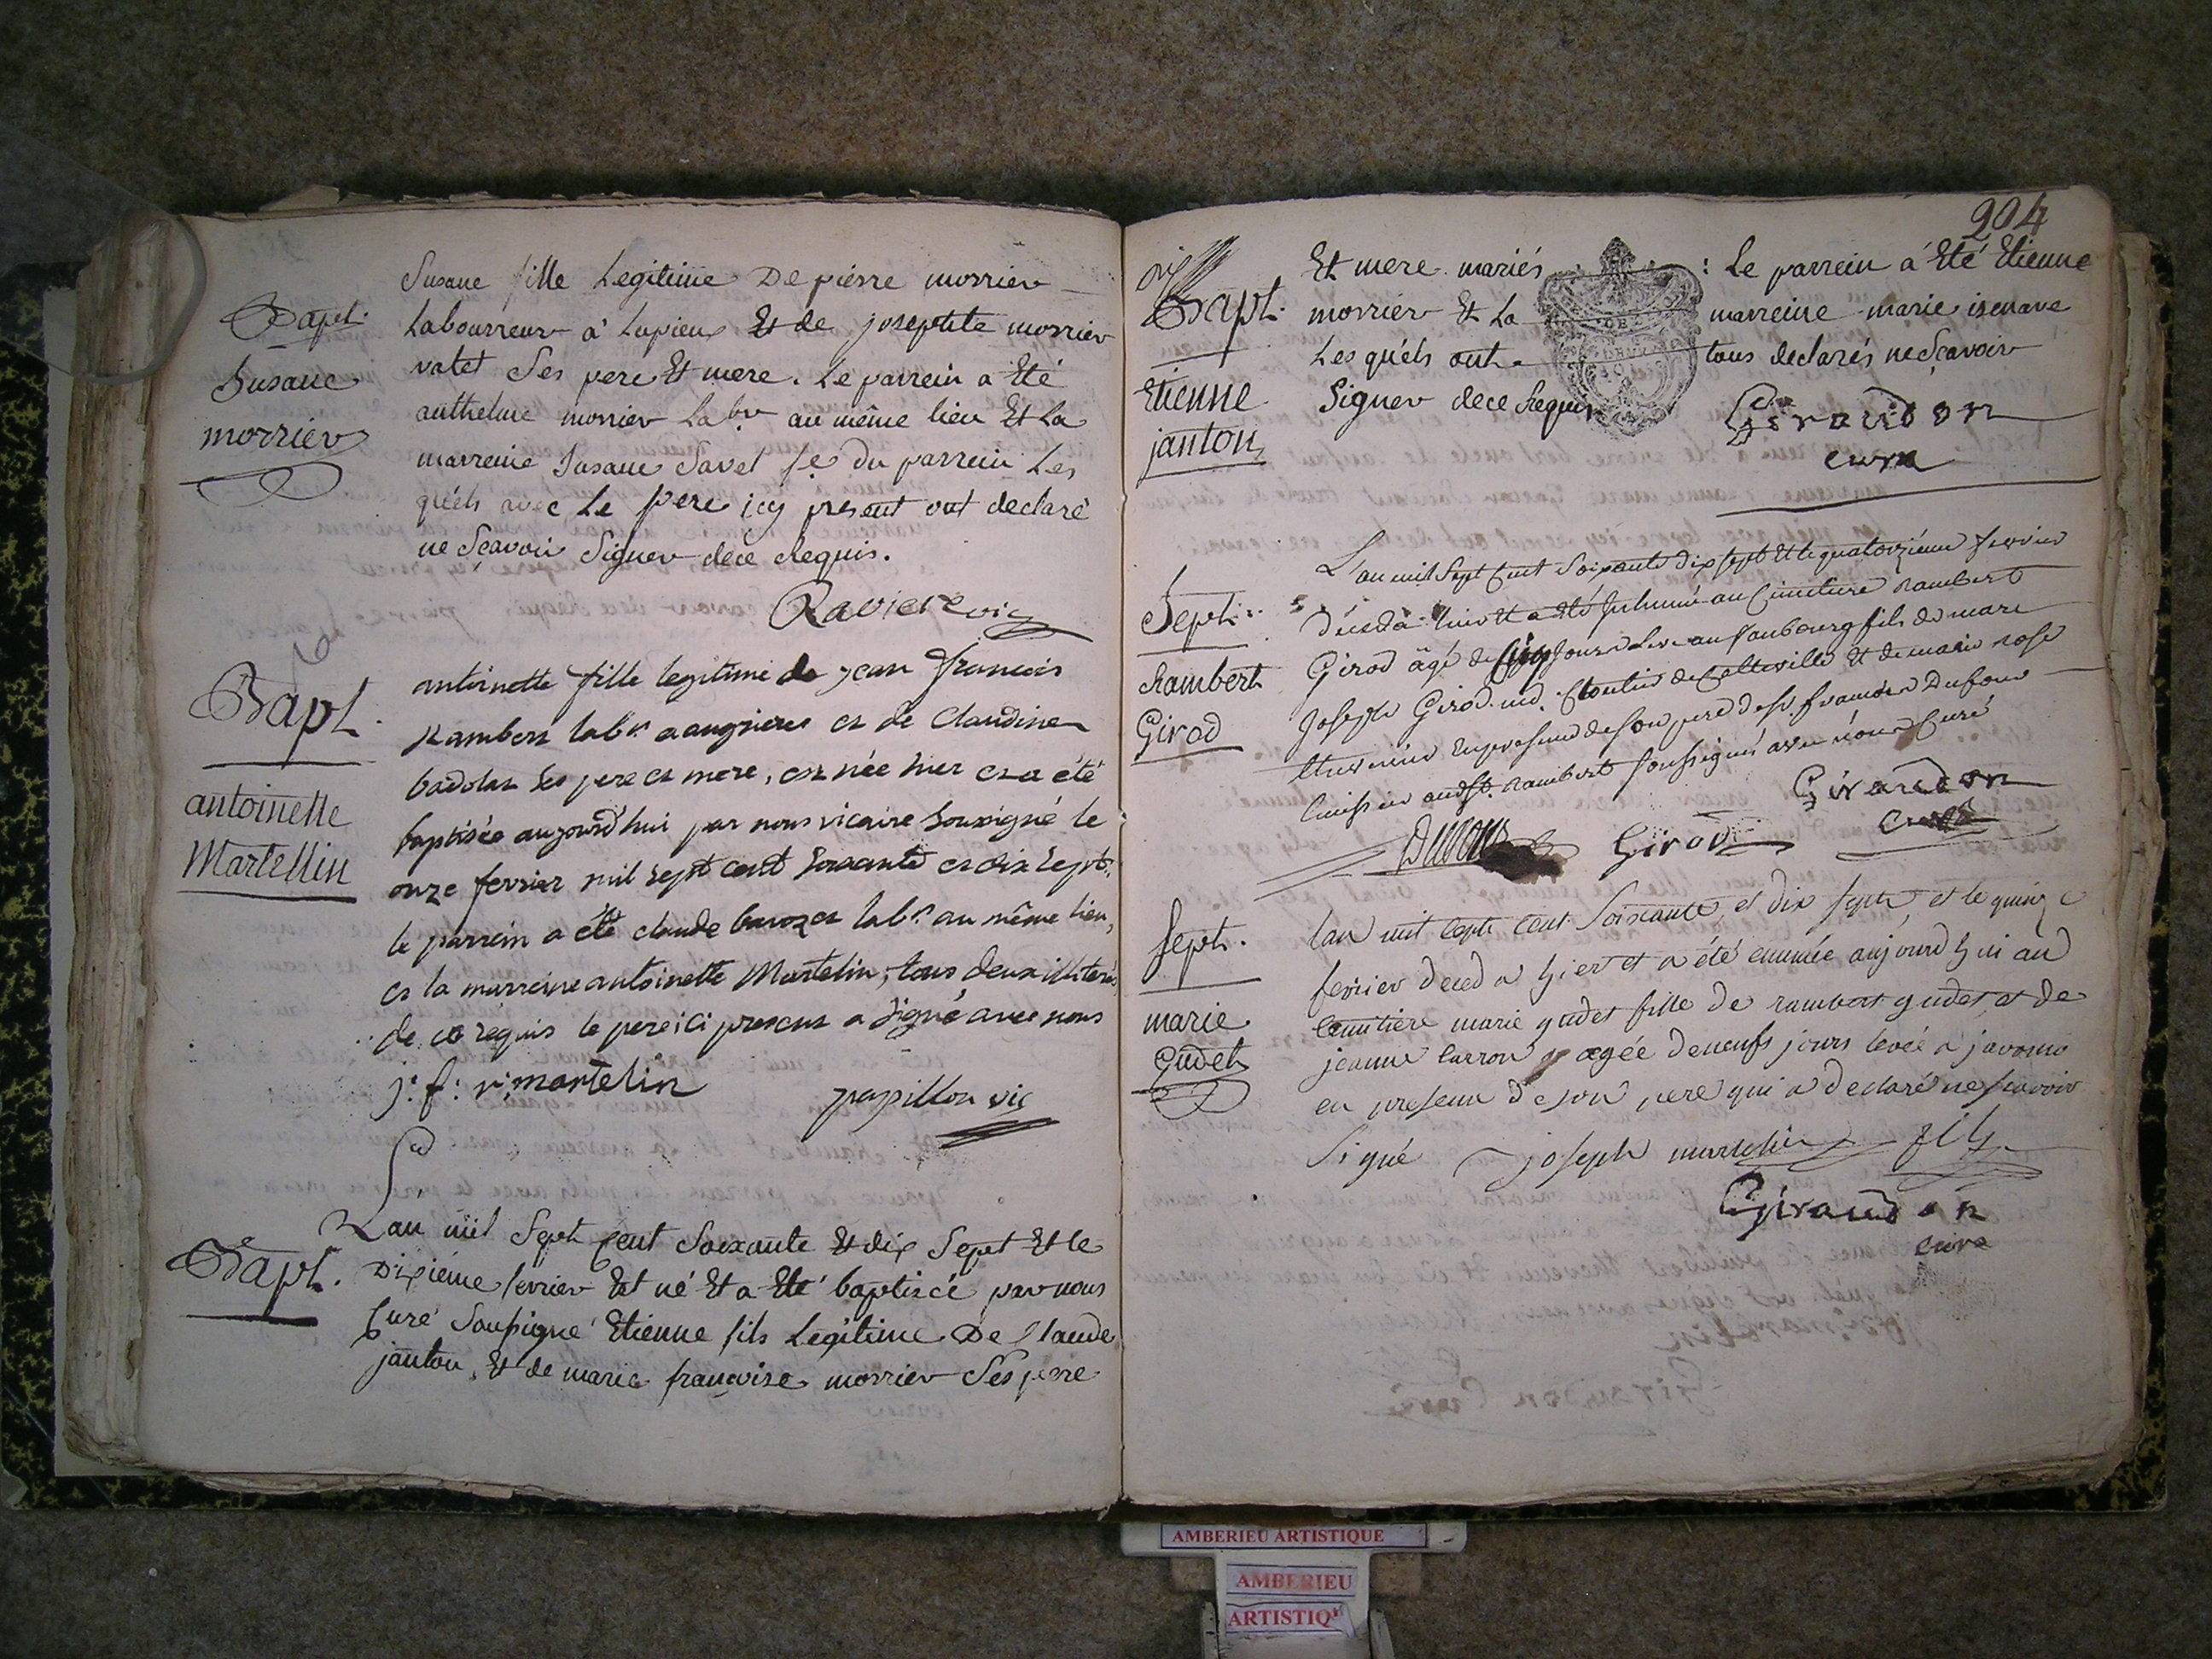 Bapt.
Susane
morrier
Susane fille Legitime De pierre morrier
Laboureur à Lupieu Et de josephte morrier
valet Ses pere Et mere. Le parrein a Eté
anthelme morrier Labr. au même lieu Et La
marreine Susane Savel fe. du parrein Les
quéls avec Le pere icy present ont declaré
ne Sçavoir Signer dece Requis.
Ravier vic
Bapt.
antoinette
Martellin
antoinette fille legitime de jean francois
Rambert labr. a augnieres et de Claudine
badolat ses pere et mere, est née hier et a été
baptisée aujourd'hui par nous vicaire soussigné le
onze fevrier mil sept cent soixante et dix sept.
le parrein a été claude labr. au même lieu,
et la marreine antoinette Martelin, tous deux illiterés
de ce requis le pere ici present a signé avec nous
j. f. r. martelin
papillon vic
Bapt.
L'an mil Sept Cent Soixante Et dix Sept Et le
Dixiéme fevrier Est né Et a Eté baptisé par nous
Curé Soussigné Etienne fils Legitime De Claude
janton, Et de marie françoise morrier Ses pere
204
Bapt.
Etienne
janton
Et mere mariés : Le parrein á Eté Etienne
morrier Et La marreine marie isenave
Les quéls ont tous declarés ne Sçavoir
Signer dece Requis
Giraudon
curé
Sept.
Rambert
Girod
L'an mil Sept Cent Soixante dix sept Et le quatorzieme fevrier
décédà hier Et a été Inhumé au Cimetiere Rambert
Girod âgé de Cinq jours au faubourg fils de marc
Joseph Girod md. de Et de marie rose
En presence de son pere de sr. francois Dufour
huissier audst. Rambert soussignés avec nous Curé
Dufour
Girod
Giraudon
curé
Sept.
marie
Gudet
lan mil Septe Cent Soixante et dix septe et le quinze
fevrier deced a hier et a été enumée aujourd hui au
cemitiere marie gudet fille de rambert gudet et de
jeanne carron agée de neufs jours levée a javorno
en presence de son pere qui a declaré ne scavoir
Signé joseph martelin fils
Giraudon
curé
AMBERIEU ARTISTIQUE
AMBERIEU
ARTISTIQ